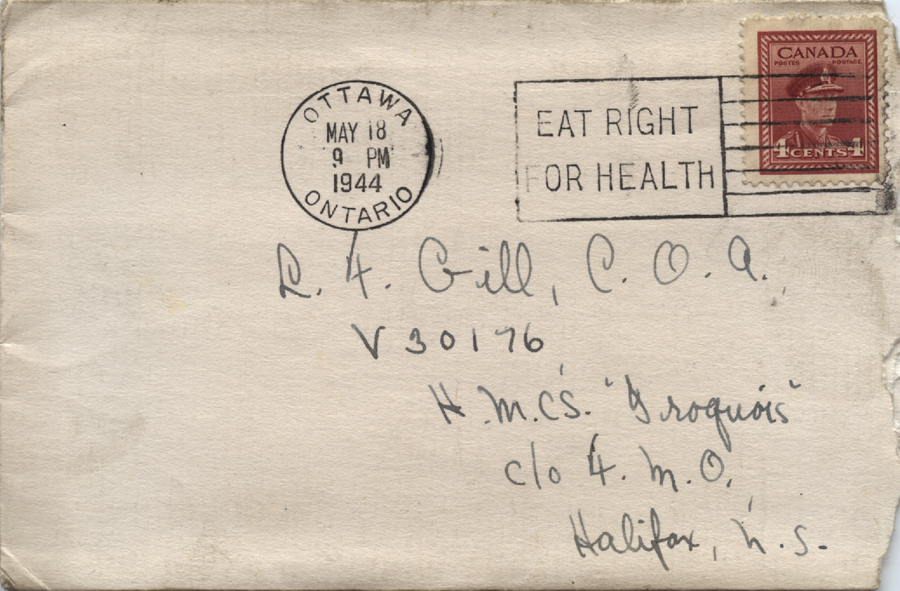 OTTAWA
MAY 18
9 PM
1944
ONTARIO
EAT RIGHT
FOR HEALTH
CANADA
POSTES POSTAGE
4 CENTS 4
L. F. Gill, C. O. A.
V 30176
H.M.C.S. "Iroquois"
c/o F. M. O.
Halifax, N.S.